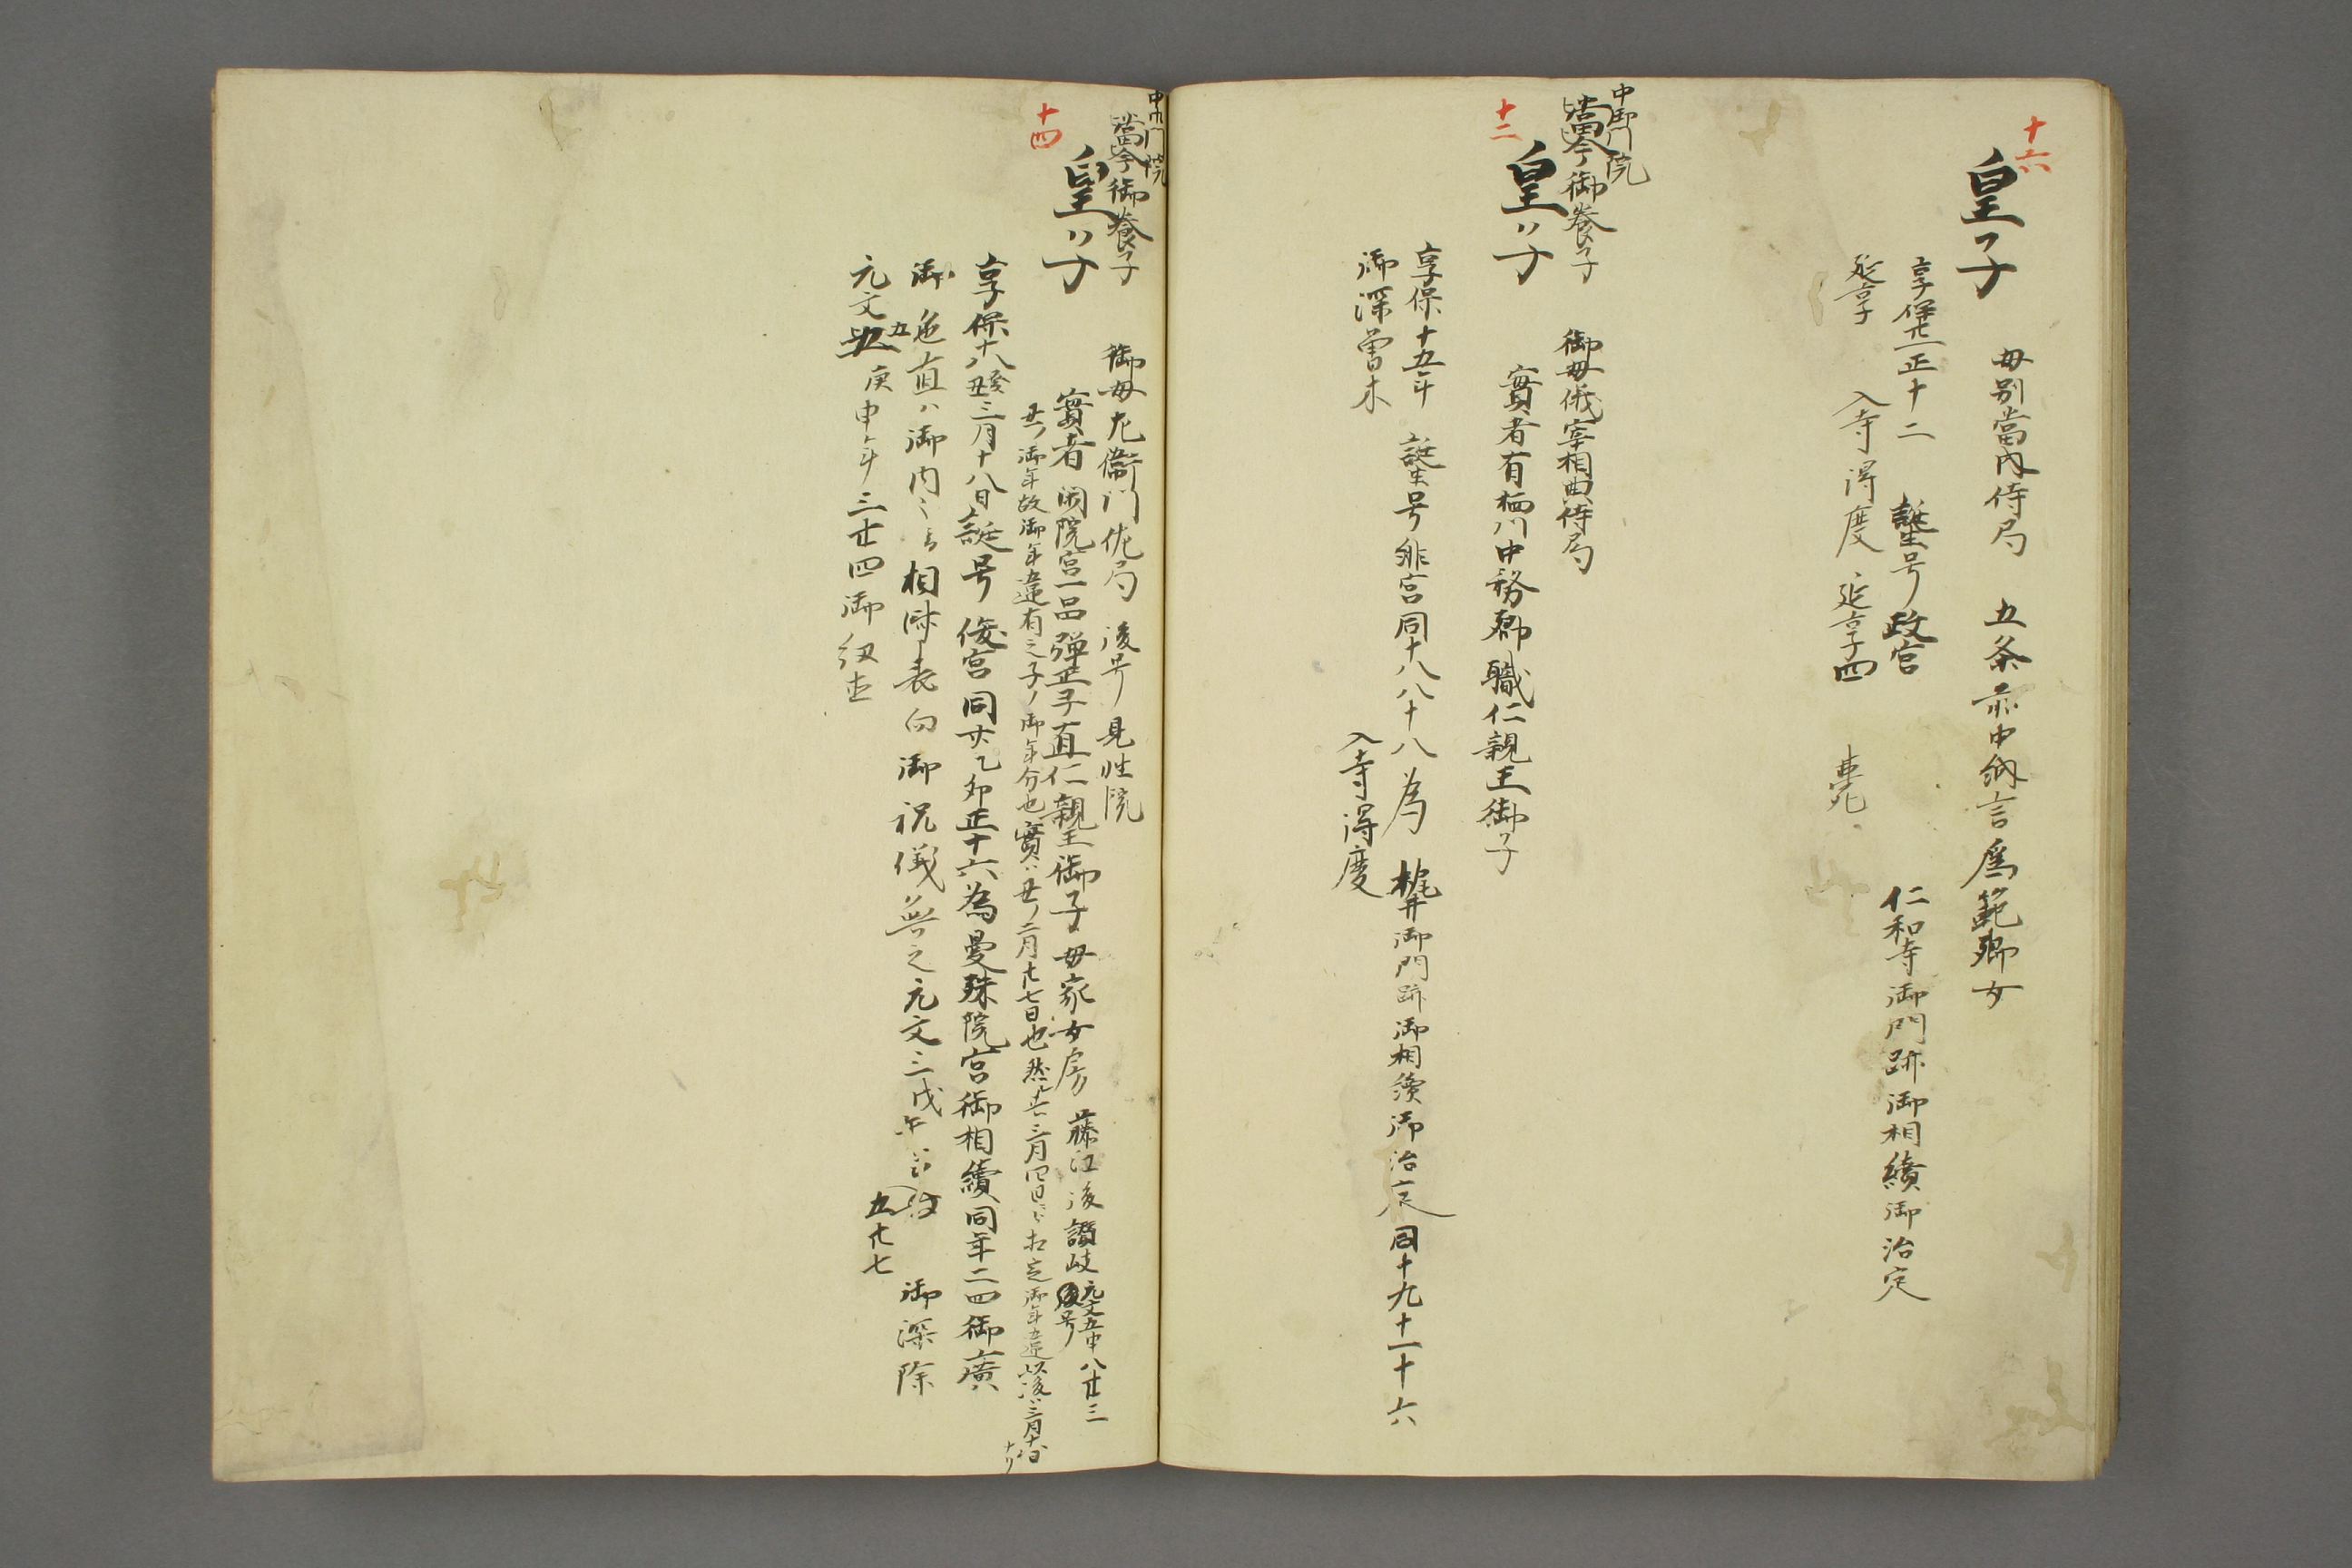 十六
皇子
母別當内侍局 五条前中納言為範卿女
享保廿一正十二 誕生号政宮 仁和寺御門跡御相續御治定
延享 入寺得度 延享四 薨
中御門院
當今御養子
十二
皇子
御母帥宰相典侍局
實者有栖川中務卿職仁親王御子
享保十五年 誕生号 宮同十八八十八為 梶井御門跡御相續御治定同十九十一十六
入寺得度
御深曽木
中御門院
當今御養子
十四
皇子
御母左衛門佐局 後号見性院
實者閑院宮一品弾正尹直仁親王御子母家女房 藤江後讃岐 元文五申八廿三 後号
丑ノ御年故御年違有之子ノ御年分也實ハ丑ノ二月廿七日也然共三月 御年違以後ハ三月十八日ナリ
享保十八癸丑三月十八日誕号 俊宮同廿乙卯正十六為曼殊院宮御相續同年二四御廣
御色直ハ御内々ニ而相済表向御祝儀無之元文三戊午 五廿七 御深除
元文五庚申年三廿四御紐直